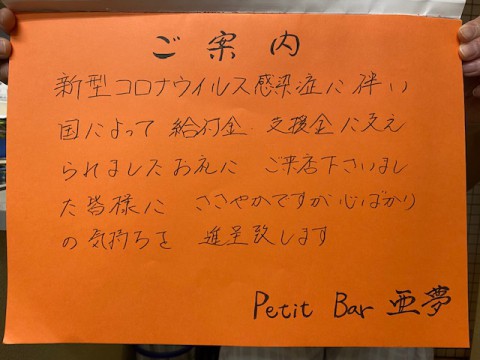 ご案内
新型コロナウイルス感染症に伴い
国によって給付金・支援金に支え
られましたお礼に ご来店下さいまし
た皆様に ささやかですが心ばかり
の気持ちを 進呈致します
Petit Bar 亜夢